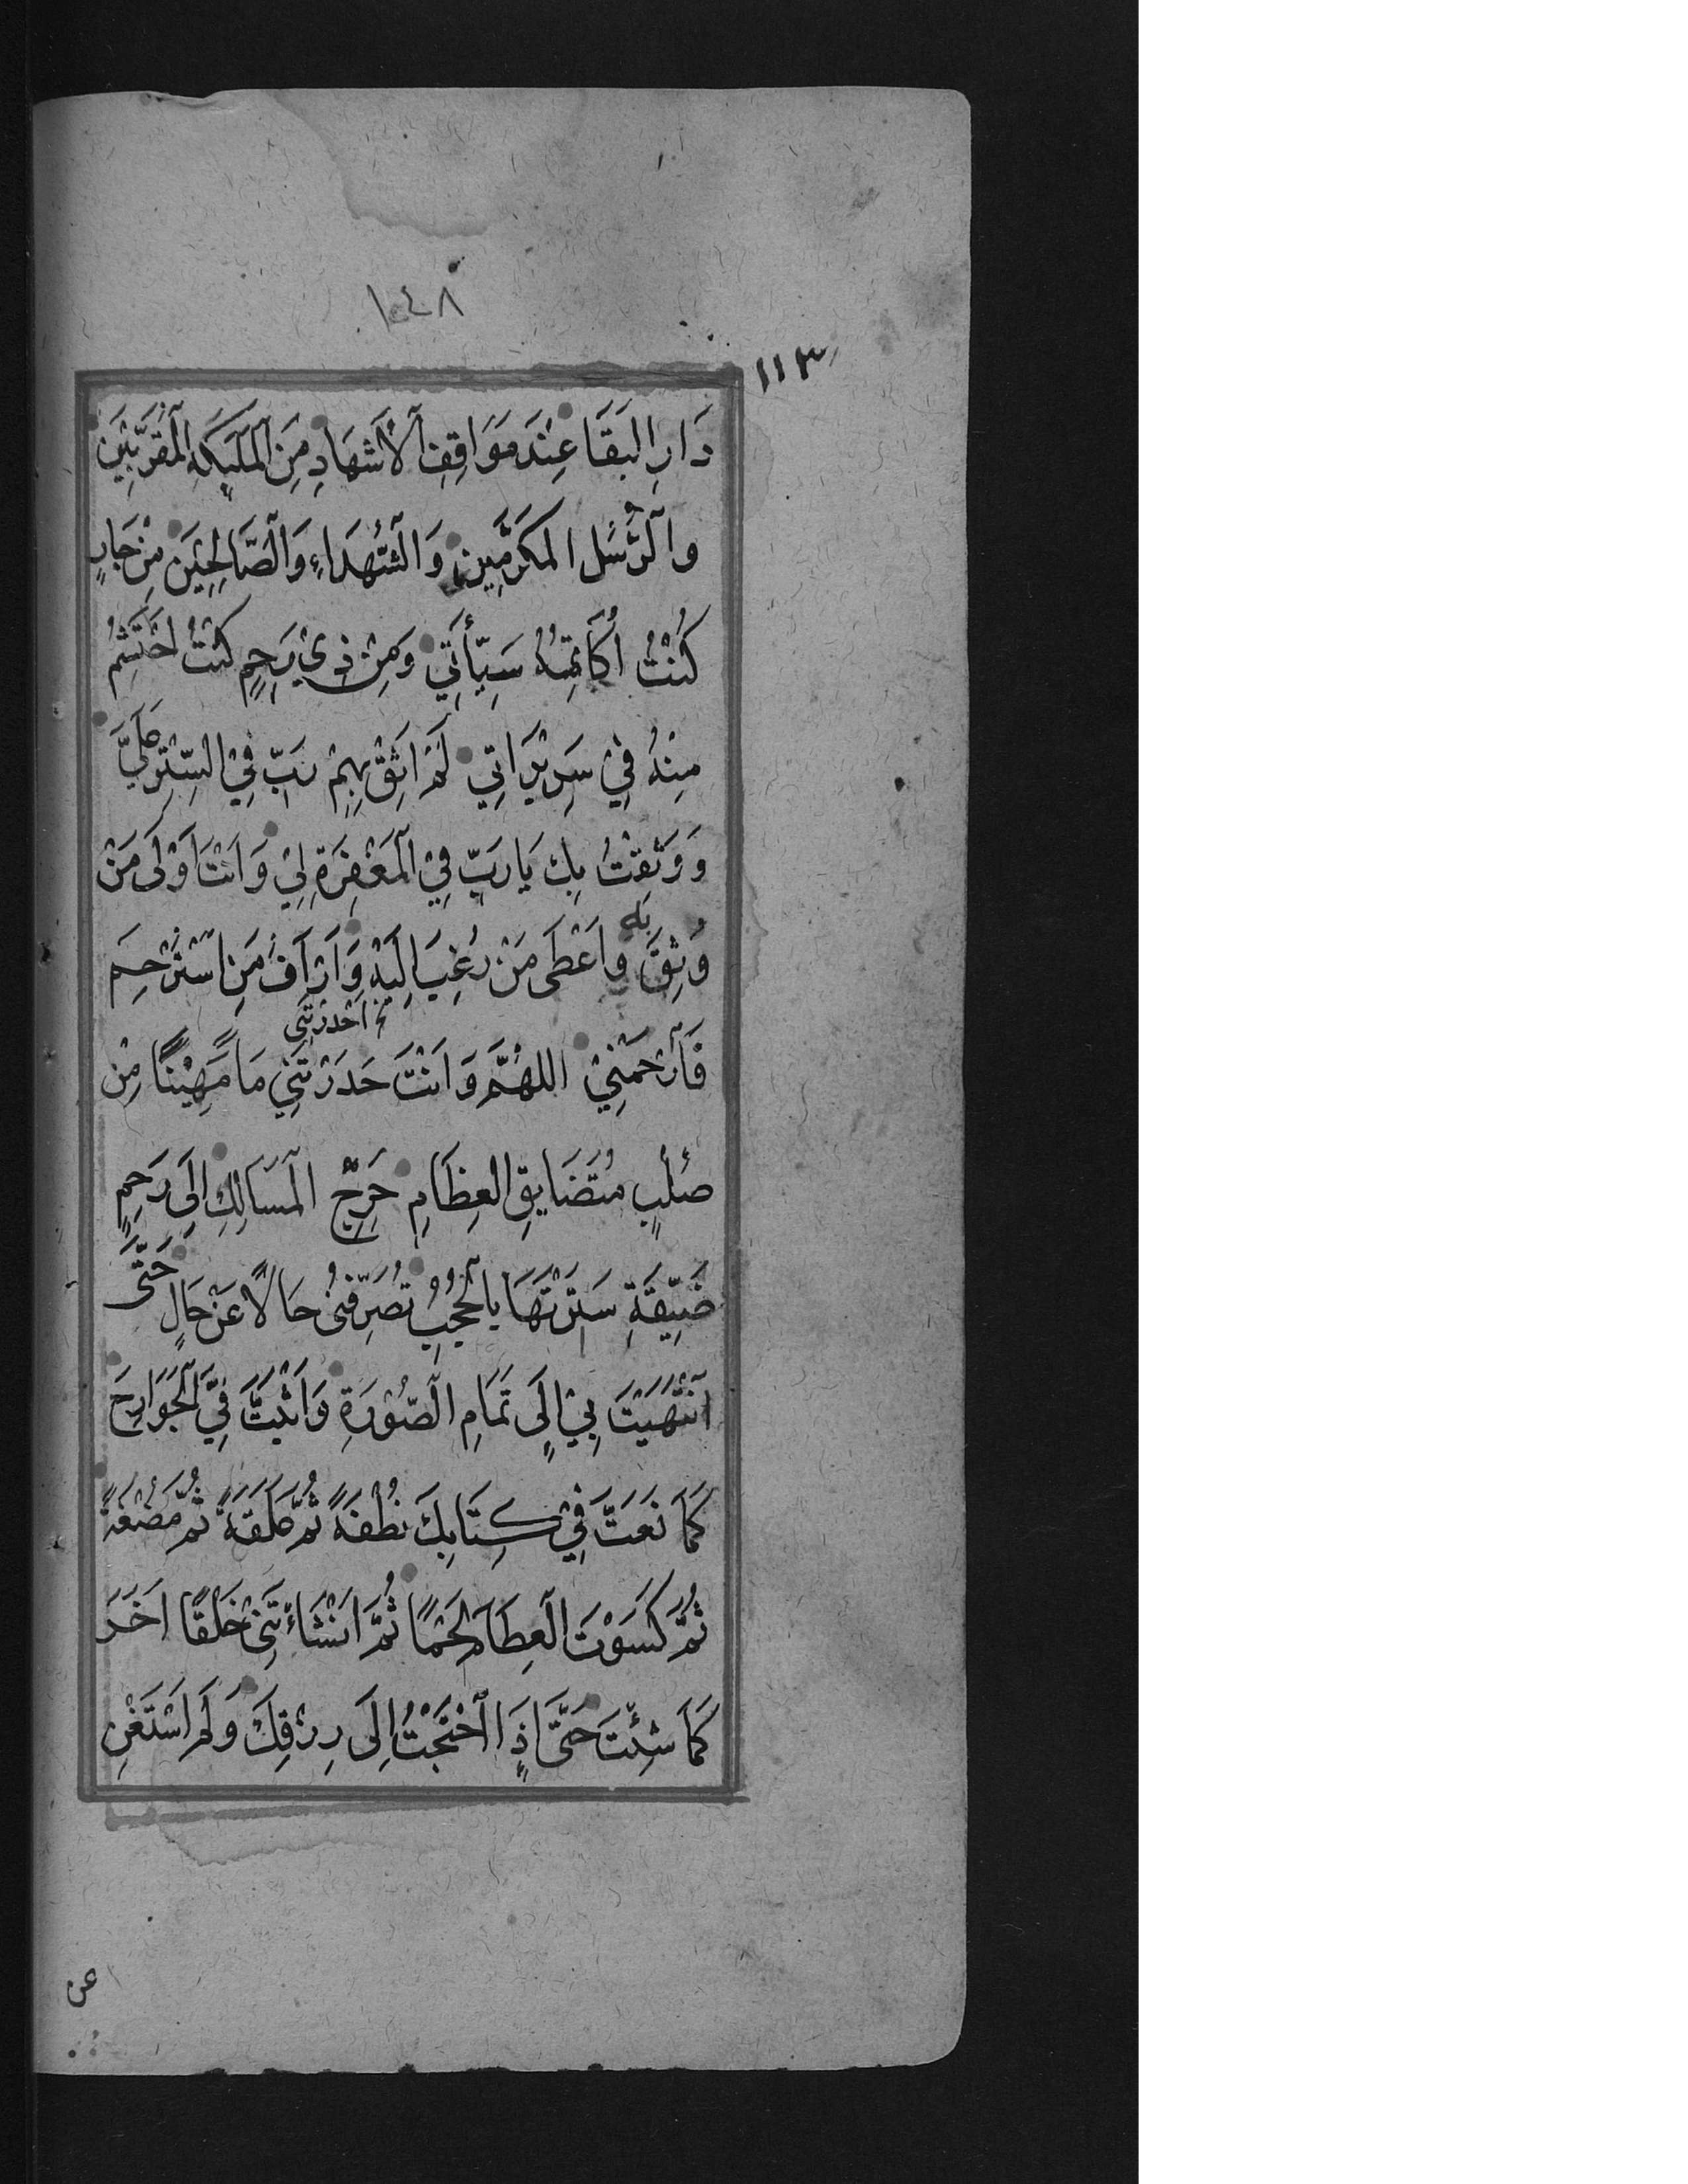 ١٤٨
١١٣
دَارِ البَقَا عِنْدَ مَوَاقِفِ اْلاَشْهَادِ مِنَ الْمَلَئِكَةِ الْمُقَرَّبِيْنَ
وَالرُّسُلِ المكَرَّمِيْنَ وَالشُّهَدَاءِ وَالصَّالِحِيْنَ مِنْ جَارٍ
كُنْتُ اُكَاتِمُهُ سَيِّأَتِي وَمِنْ ذِيْ رَحِمٍ كُنْتُ اَحْتَشِمُ
مِنْهُ فِيْ سَرِيْرَاتِي لَمْ اَثِقْ بِهِمْ رَبِّ فِي السِّتْرِ عَلَيَّ
وَوَثِقْتُ بِكَ يَا رَبِّ فِي الْمَغْفِرَةِ لِيْ وَاَنْتَ اَوْلَى مَنْ
وُثِقَ بِهِ وَاَعْطَى مَنْ رُغِبَ اِلَيْهِ وَاَرْاَفُ مَنِ اسْتُرْحِمَ
فَارْحَمْنِيْ اللهُمَّ وَاَنْتَ حَدَرْتَنِيْ مَاً مَهِيْنًا مِنْ
خ احدرتنِى
صُلْبٍ مُتَضَايِقِ العِظَامِ حَرِجِ الْمَسَالِكِ اِلَى رَحِمٍ
ضَيِّقَةٍ سَتَرْتَهَا بِالْحُجُبِ تُصَرِّفُنِى حَالاً عَنْ حَالٍ حَتَّى
انْتَهَيْتَ بِيْ اِلَى تَمَامِ الصُّوْرَةِ وَاَثْبَتَّ فِيَّ الْجَوَارِحَ
كَمَا نَعَتَّ فِيْ كِتَابِكَ نُطْفَةً ثُمَّ عَلَقَةً ثُمَّ مُضْغَةً
ثُمَّ كَسَوْتَ الْعِظَامَ لَحْمًا ثُمَّ اَنْشَاْءتَنِى خَلْقًا اخَرَ
كَمَا شِئْتَ حَتَّى اِذَا احْتَجْتُ اِلَى رِزْقِكَ وَلَمْ اَسْتَغْنِ
عن